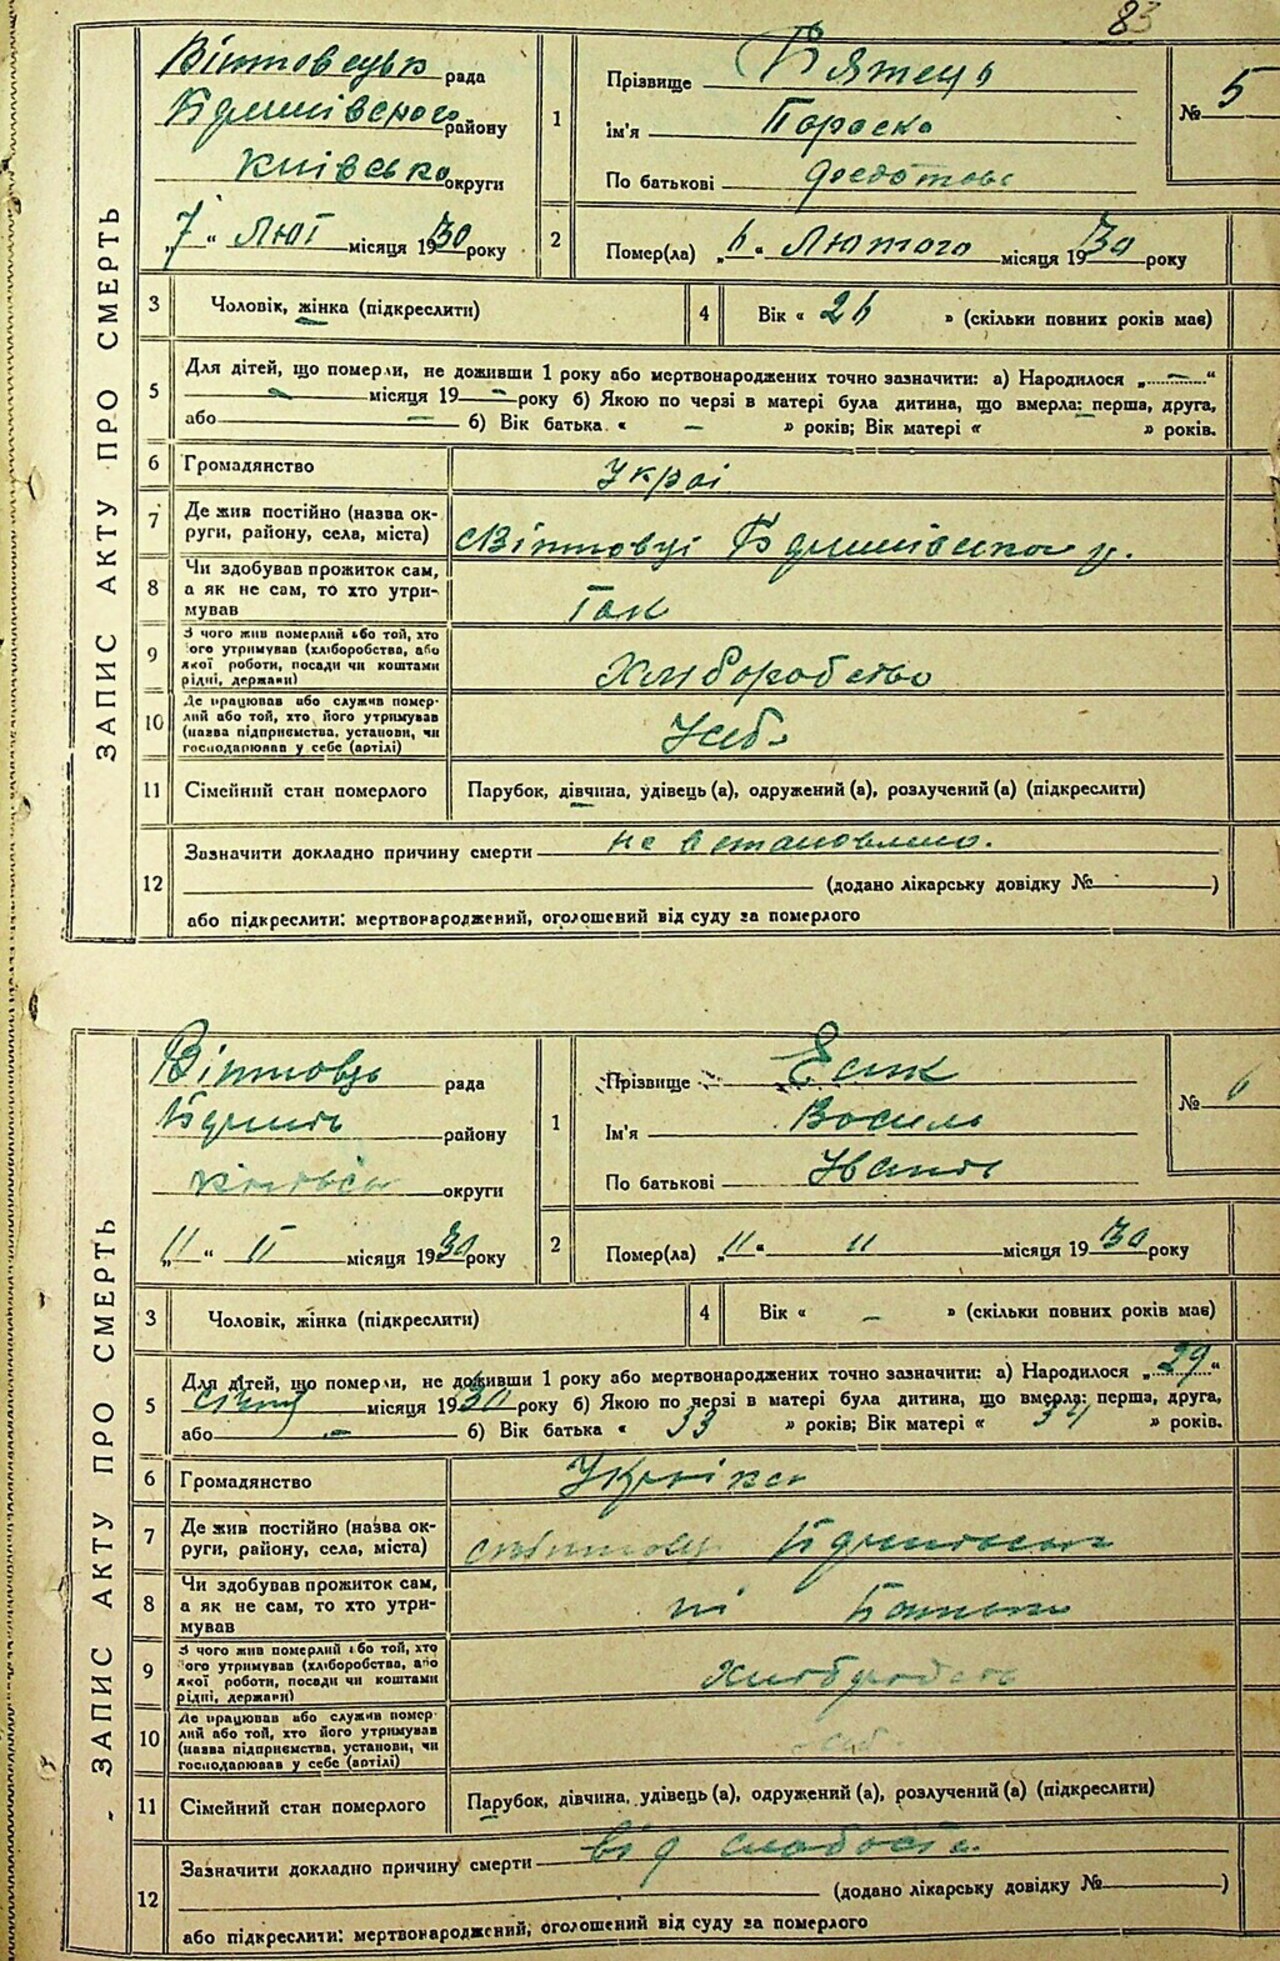 83
ЗАПИС АКТУ ПРО СМЕРТЬ
рада
району
Київсько округи
„7“ Лют місяця 1930 року
1 Прізвище
Ім'я Параска
По батькові Федотова
№ 5
2 Помер(ла) „6“ Лютого місяця 1930 року
3 Чоловік, жінка (підкреслити)
4 Вік « 26 » (скільки повних років має)
5 Для дітей, що померли, не доживши 1 року або мертвонароджених точно зазначити: а) Народилося „ – “
– місяця 19 – року б) Якою по черзі в матері була дитина, що вмерла: перша, друга,
або – б) Вік батька « – » років; Вік матері « » років.
6 Громадянство Украі
7 Де жив постійно (назва ок-
руги, району, села, міста)
8 Чи здобував прожиток сам,
а як не сам, то хто утри-
мував Так
9 З чого жив померлий або той, хто
його утримував (хліборобства, або
якої роботи, посади чи коштами
рідні, держави) Хліборобство
10 Де працював або служив помер-
лий або той, хто його утримував
(назва підприємства, установи, чи
господарював у себе (артілі) У себе
11 Сімейний стан померлого Парубок, дівчина, удівець (а), одружений (а), розлучений (а) (підкреслити)
12 Зазначити докладно причину смерти не встановлено.
(додано лікарську довідку № )
або підкреслити: мертвонароджений, оголошений від суду за померлого
ЗАПИС АКТУ ПРО СМЕРТЬ
рада
району
округи
„11“ II місяця 1930 року
1 Прізвище
Ім'я Василь
По батькові Іванов
№ 6
2 Помер(ла) „11“ II місяця 1930 року
3 Чоловік, жінка (підкреслити)
4 Вік « – » (скільки повних років має)
5 Для дітей, що померли, не доживши 1 року або мертвонароджених точно зазначити: а) Народилося „29“
січня місяця 1930 року б) Якою по черзі в матері була дитина, що вмерла: перша, друга,
або – б) Вік батька « 33 » років; Вік матері « 34 » років.
6 Громадянство
7 Де жив постійно (назва ок-
руги, району, села, міста)
8 Чи здобував прожиток сам,
а як не сам, то хто утри-
мував ні
9 З чого жив померлий або той, хто
його утримував (хліборобства, або
якої роботи, посади чи коштами
рідні, держави)
10 Де працював або служив помер-
лий або той, хто його утримував
(назва підприємства, установи, чи
господарював у себе (артілі)
11 Сімейний стан померлого Парубок, дівчина, удівець (а), одружений (а), розлучений (а) (підкреслити)
12 Зазначити докладно причину смерти від слабости
(додано лікарську довідку № )
або підкреслити: мертвонароджений, оголошений від суду за померлого